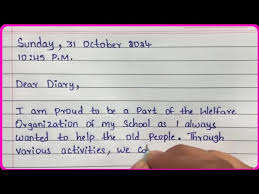 Sunday, 31 October 2024
10:45 P.M.
Dear Diary,
I am proud to be a Part of the Welfare
Organization of my School as I always
wanted to help the old People. Through
various activities, we